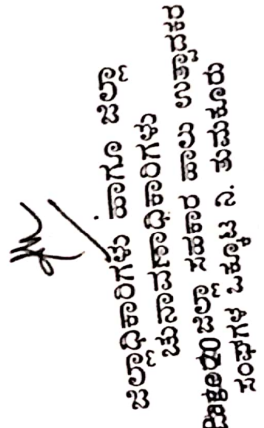 ಜಿಲ್ಲಾಧಿಕಾರಿಗಳು ಹಾಗೂ ಜಿಲ್ಲಾ
ಚುನಾವಣಾಧಿಕಾರಿಗಳು
ಜಿಲ್ಲಾ ಸಹಕಾರ ಹಾಲು ಉತ್ಪಾದಕರ
ಸಂಘಗಳ ಒಕ್ಕೂಟ ನಿ. ತುಮಕೂರು